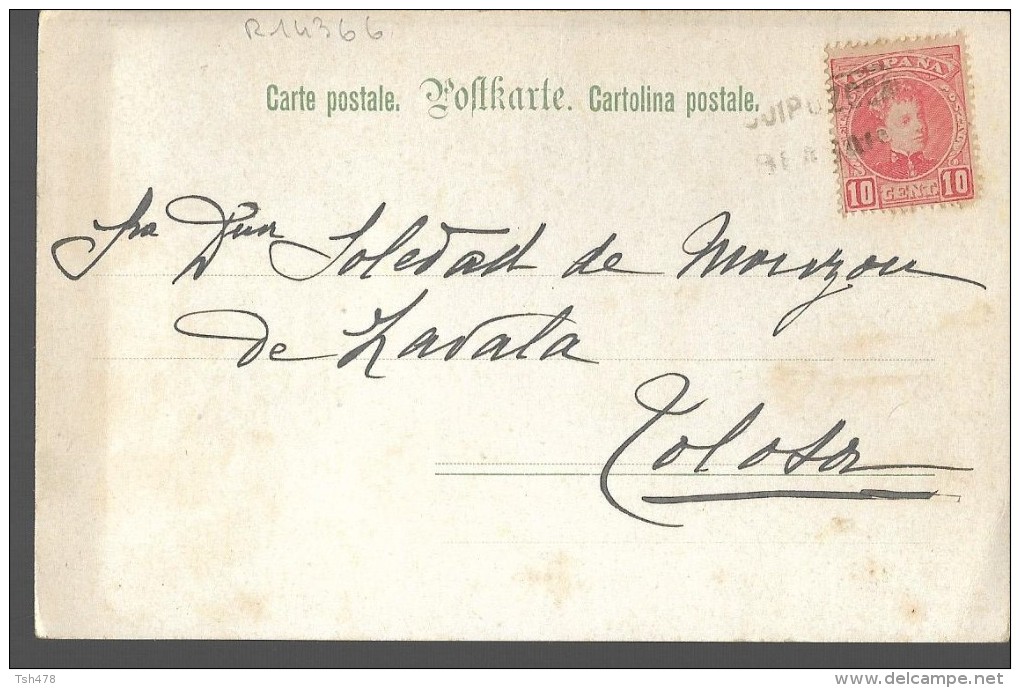 R14366
Carte postale. Postkarte. Cartolina postale.
ESPAÑA
GUIPUZCOA
10 CENT. 10
Sra Dña Soledad de Monzon
de Zavala
Tolosa
Tsh478
delcampe.net